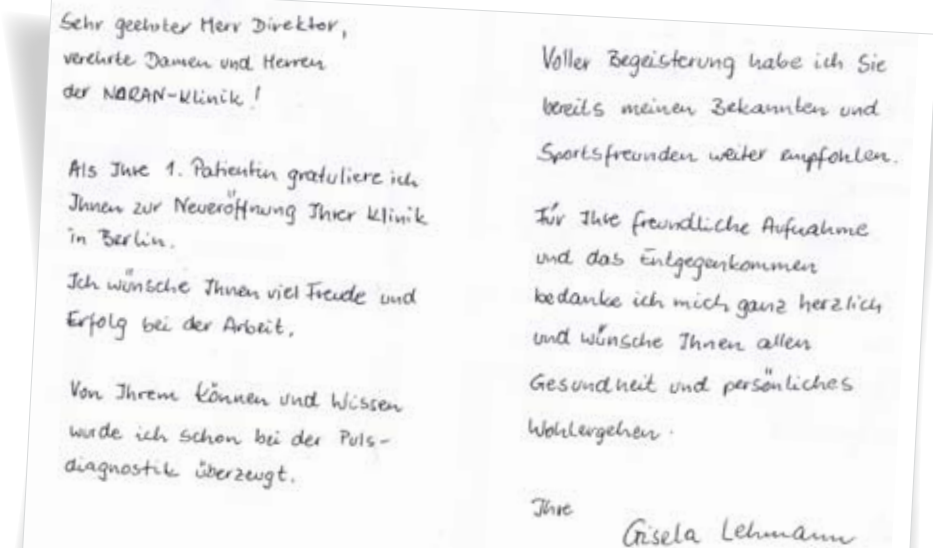 Sehr geehrter Herr Direktor,
verehrte Damen und Herren
der NARAN-Klinik!
Als Ihre 1. Patientin gratuliere ich
Ihnen zur Neueröffnung Ihrer Klinik
in Berlin.
Ich wünsche Ihnen viel Freude und
Erfolg bei der Arbeit.
Von Ihrem Können und Wissen
wurde ich schon bei der Puls-
diagnostik überzeugt.
Voller Begeisterung habe ich Sie
bereits meinen Bekannten und
Sportsfreunden weiter empfohlen.
Für Ihre freundliche Aufnahme
und das Entgegenkommen
bedanke ich mich ganz herzlich
und wünsche Ihnen allen
Gesundheit und persönliches
Wohlergehen.
Ihre
Gisela Lehmann